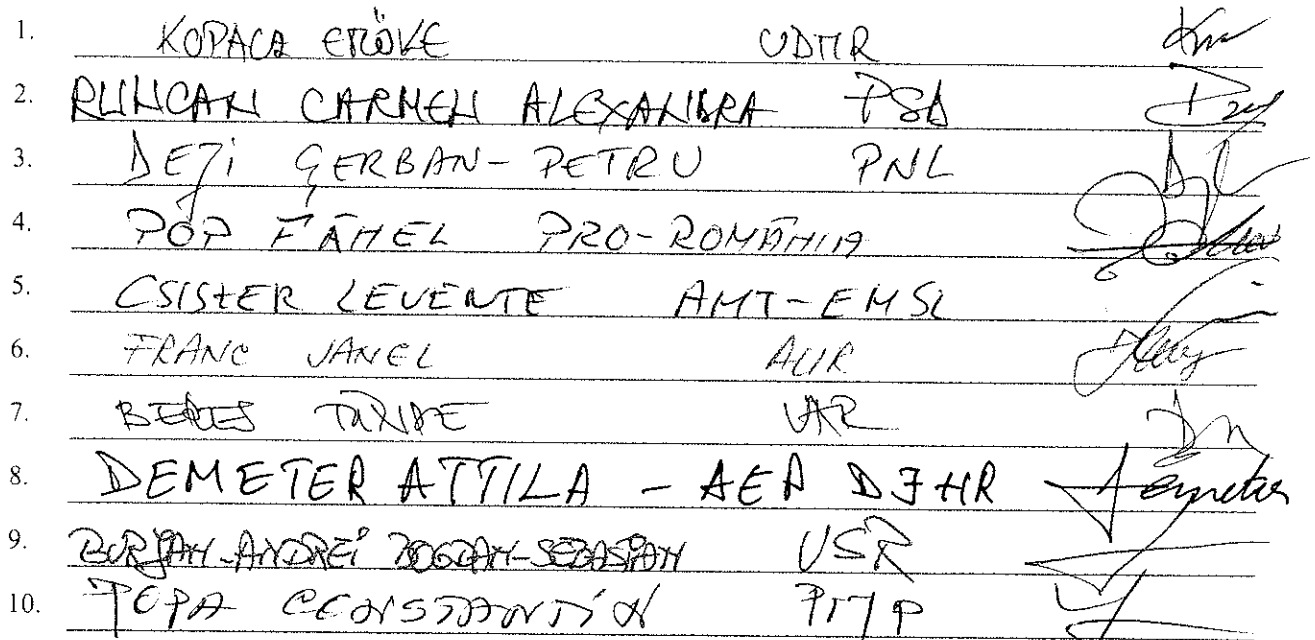 1. KOPACZ EMŐKE UDMR
2. RUNCAN CARMEN ALEXANDRA PSD
3. DEJI ȘERBAN-PETRU PNL
4. POP FĂNEL PRO-ROMÂNIA
5. CSISZER LEVENTE AMT-EMSZ
6. FRANC VANEL AUR
7. BERES TÜNDE
8. DEMETER ATTILA - AEP DJ HR Demeter
9. BURJAN-ANDREI BOGDAN-SEBASTIAN USR
10. POPA CONSTANTIN PMP